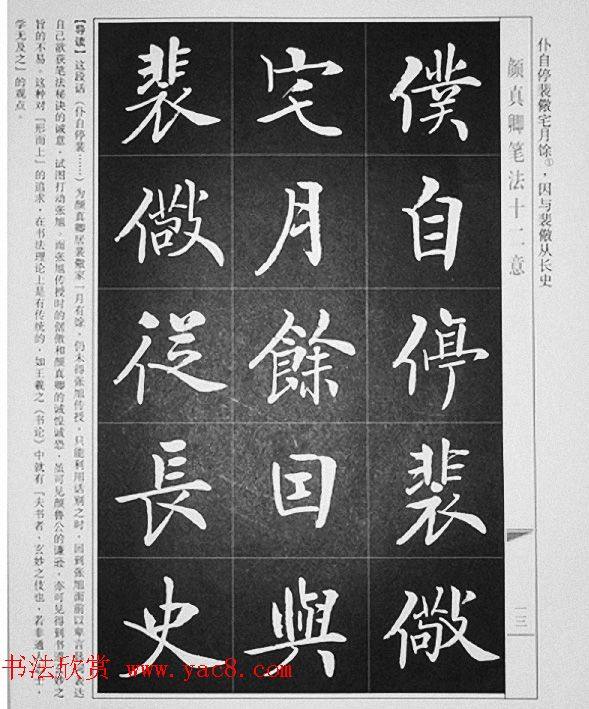 仆自停裴儆宅月馀①，因与裴儆从长史
颜真卿笔法十二意
一三
僕自停裴儆
宅月餘因與
裴儆從長史
【导读】这段话（仆自停裴……）为颜真卿居裴儆家一月有馀，仍未得张旭传授，只能利用话别之时，回到张旭面前以卑言 表达
自己欲获笔法秘诀的诚意，试图打动张旭。而张旭传授时的倨傲和颜真卿的诚惶诚恐，虽可见颜鲁公的谦逊，亦可见得到书 妙之
旨的不易。这种对『形而上』的追求，在书法理论上是有传统的，如王羲之《书论》中就有『夫书者，玄妙之伎也，若非通 士，
学无及之』的观点。
书法欣赏 www.yac8.com